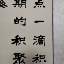 点一滴积
期的积聚